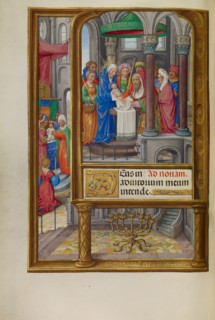 Eus in Ad nonam.
adiutorium meum
intende.